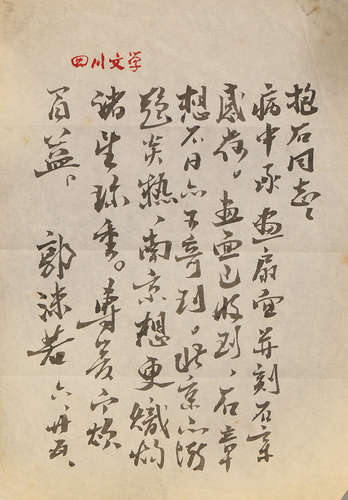 四川文学
抱石同志、
病中承画扇面并刻石章
感荷。画面已收到、石章
想不日亦可寄到。北京亦渐
趋炎热、南京想更熾灼
诸望珍重。專
百益。 郭沫若 六、廿五、